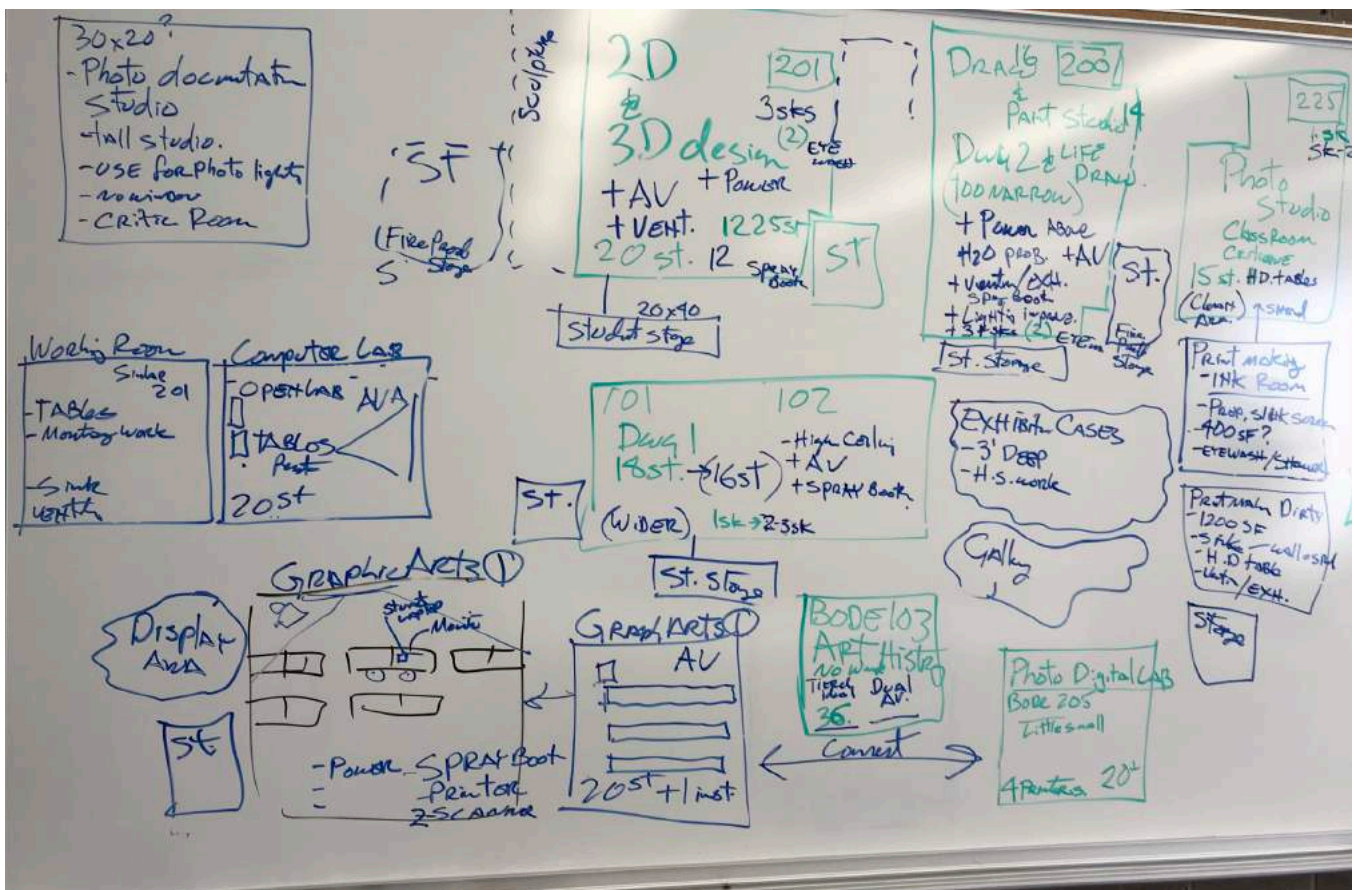 30x20?
- Photo documtatn
Studio
- tall studio.
- USE for Photo lights
- no window
- Critic Room
ST
(Fire Proof
Stoge
S
Sculpture
2D
&
3D design
201
3 sks
(2) EYE
+ AV + Power
+ VENT. 1225sf
20 st. 12 SPRAY
Booth
ST
20x40
Student Stoge
DRAwg 16 200
&
Paint Studio
Dwg 2 & LIFE
DRAW.
(TOO NARROW)
+ Power Above
H2O prob. +AV
+ Ventn/EXH.
SPRAY Booth
+ Lightig improv.
+ 3 sks (2) EYE
St.
Fire
Proof
Storage
St. Storage
225
1 sk
Photo
Studio
Classroom
Critique
15 st. H.D. tables
(Clean)
Area.
Print making
- INK Room
- Prep, silk screen
- 400 SF?
- EYEWASH/Shower
Prntmakn Dirty
- 1200 SF
- H.D table
- Ventn/EXH.
Storage
Working Room
Sinke
201
- TABles
- Montog work
- Sink
Computer LAB
- OPEN LAB -
AVA
TABLOS
20 st
101 102
Dwg 1
18 st. → (16 ST)
- High Ceiling
+ AV
+ SPRAY Booth
(WiDER) 1sk → 2-3sk
St.
St. Stoge
EXHIBITn CASES
- 3' DEEP
- H.S. work
Gallery
GRAPHIC ARTS ①
Student
laptop
Monitor
Display
AREA
St.
- Power - SPRAY Boot
- Printor
2-SCanner
GRAPh ARTS ①
AV
20 st + 1 inst.
BODE 103
ART Histry
Dual
AV.
36.
Connect
Photo Digital LAB
BODE 205
Little small
4 Printers 20±